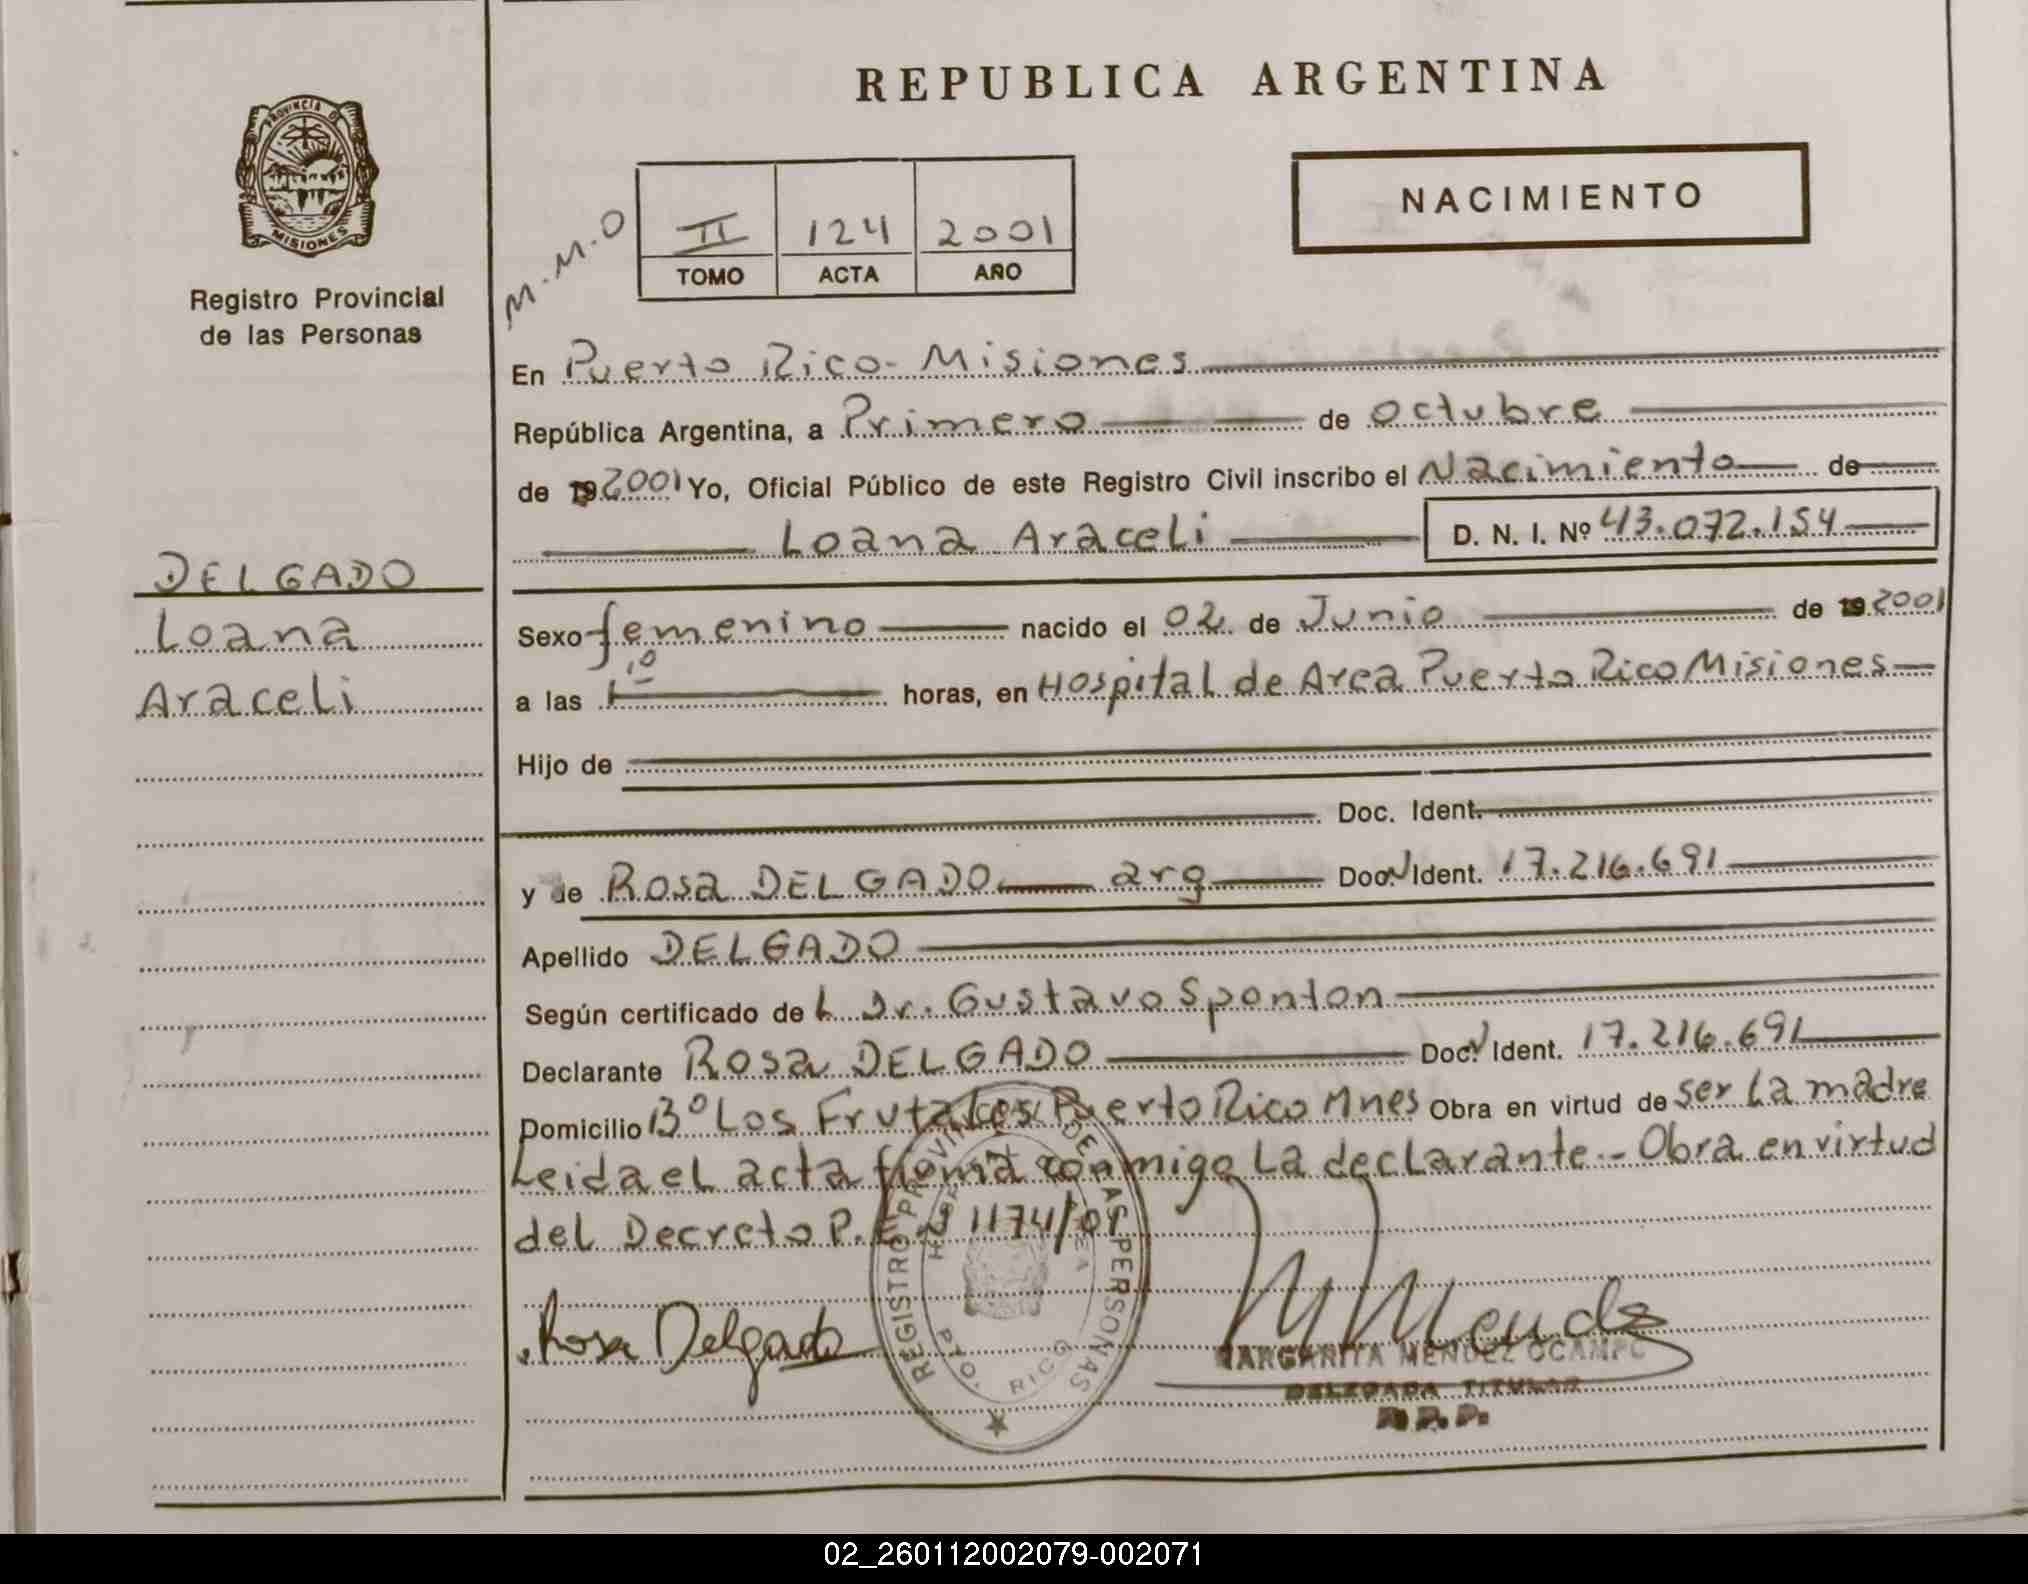 REPUBLICA ARGENTINA
PROVINCIA DE
MISIONES
Registro Provincial
de las Personas
NACIMIENTO
M.M.O
II 124 2001
TOMO ACTA AÑO
En Puerto Rico - Misiones
República Argentina, a Primero de octubre
de 19 2001 Yo, Oficial Público de este Registro Civil inscribo el Nacimiento de
Loana Araceli D. N. I. Nº 43.072.154
DELGADO
Loana
Araceli
Sexo femenino nacido el 02 de Junio de 19 2001
a las horas, en Hospital de Area Puerto Rico Misiones
Hijo de
Doc. Ident.
y de Rosa DELGADO arg Doc. Ident. 17.216.691
Apellido DELGADO
Según certificado de L Dr. Gustavo Sponton
Declarante Rosa DELGADO Doc. Ident. 17.216.691
Domicilio Bº Los Frutales Puerto Rico Mnes Obra en virtud de ser La madre
Leida el acta firma conmigo La declarante.- Obra en virtud
del Decreto P. 1174/01
Rosa Delgado
MARGARITA MENDEZ OCAMPO
DELEGADA TITULAR
R.P.P.
REGISTRO PROVINCIAL DE LAS PERSONAS
PTO. RICO
02_260112002079-002071